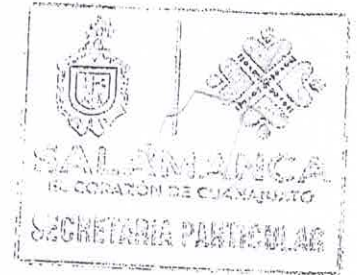 SALAMANCA
EL CORAZÓN DE GUANAJUATO
SECRETARÍA PARTICULAR